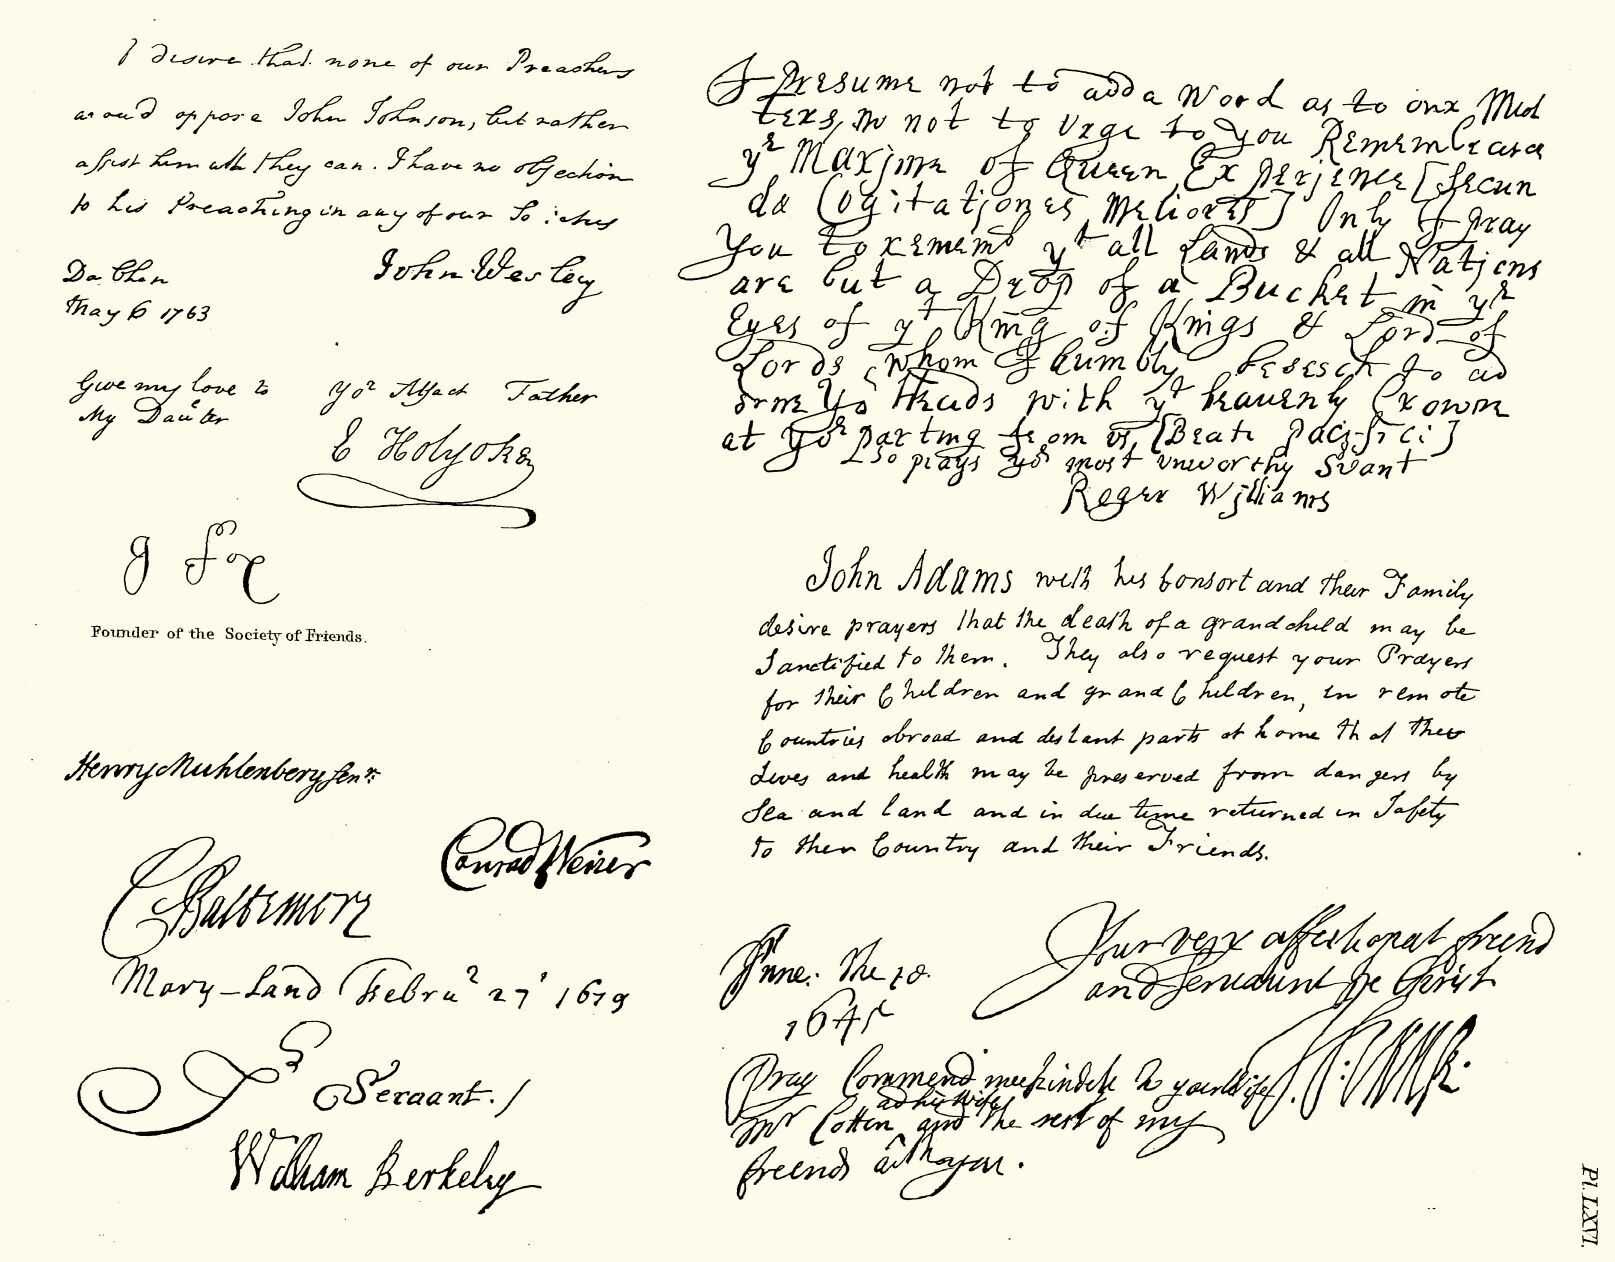 I desire that none of our Preachers
assist him all they can. I have no objection
to his Preaching in any of our So:ieties
John Wesley
Dublin
May 6 1763
Give my love to
My Dau'ter
Yor Affect Father
E Holyoke
g Fox
Founder of the Society of Friends.
Henry Muhlenberg Senr:
Conrad Weiser
C Baltemore
Mary-Land Febru 27 1679
Servant./
William Berkeley
I presume not to add a Word as to our Med
ters, nor not to Urge to you Remembrance
ye Maxjme of Queen Experjence [secun
da Cogitatjones meliores] Only I pray
You to rememb yt all Lands & all Natjons
are but a Drop of a Bucket in ye
Eyes of yt King of Kings & Lord of
Lords, whom I humbly beseech to ad
orne Yor Heads with yt heavenly Crowne
at Yor parting from us, [Beati pacifici]
so prays Yor most unworthy Svant
Roger Wjlliams
John Adams with his Consort and their Family
desire prayers that the death of a grandchild may be
Sanctified to them. They also request your Prayers
for their Children and grand Children, in remote
Countries abroad and distant parts at home that their
Lives and health may be preserved from dangers by
Sea and land and in due time returned in Safety
to their Country and their Friends.
June: the 10.
1645
Your very affectionat freend
and servaunt in Christ
Pray Commend mee kindely to your Wife
Mr Cotten and his Wife and the rest of my
freends with you.
Pl. LXVI.